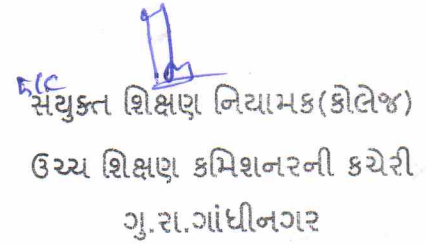 સંયુક્ત શિક્ષણ નિયામક(કોલેજ)
ઉચ્ચ શિક્ષણ કમિશનરની કચેરી
ગુ.રા.ગાંધીનગર